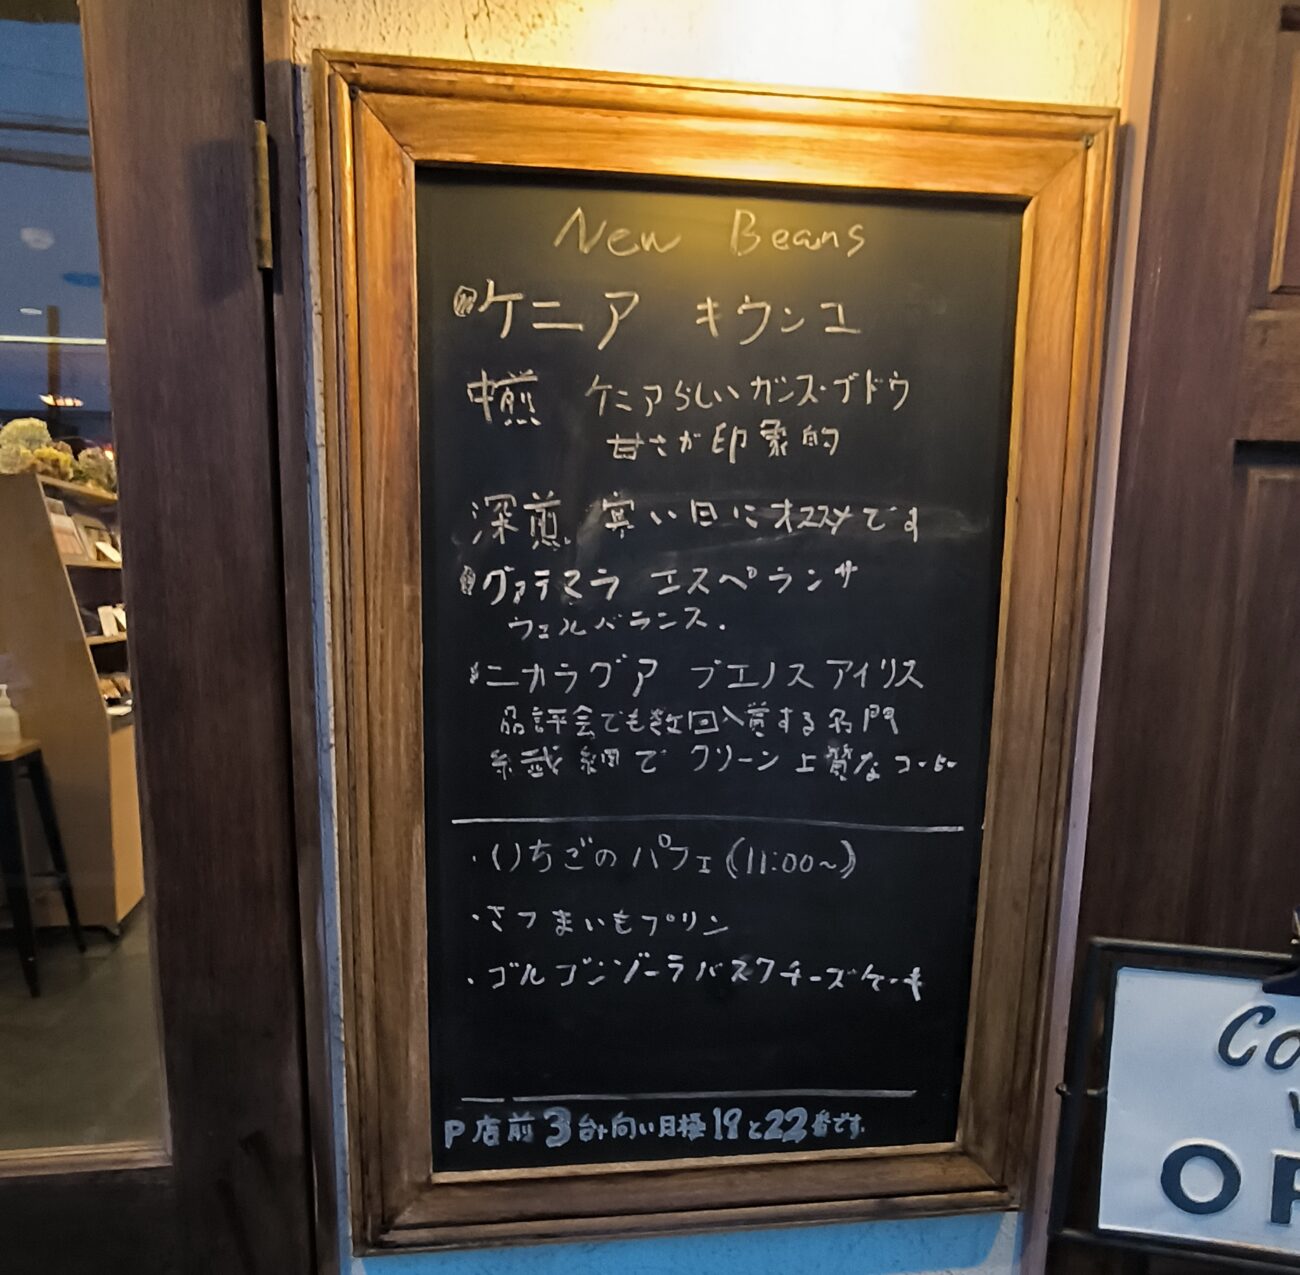 New Beans
ケニア キウンユ
中煎 ケニアらしいガンス・ブドウ
甘さが印象的
深煎 寒い日にオススメです
グァテマラ エスペランサ
ウェルバランス.
ニカラグア ブエノスアイリス
品評会でも数回入賞する名門
繊細でクリーン上質なコーヒー
・いちごのパフェ(11:00~)
・さつまいもプリン
・ゴルゴンゾーラバスクチーズケーキ
P店前3台+向い月極19と22番です.
Co
OP